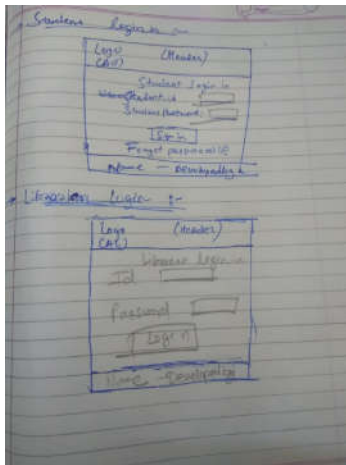 Student Login :-
Logo (Header)
Student Login
Student id
Student Password
Login
Forgot password
Name -
Librarian Login :-
Logo (Header)
Login
Id
Password
Login
Name - Developed by